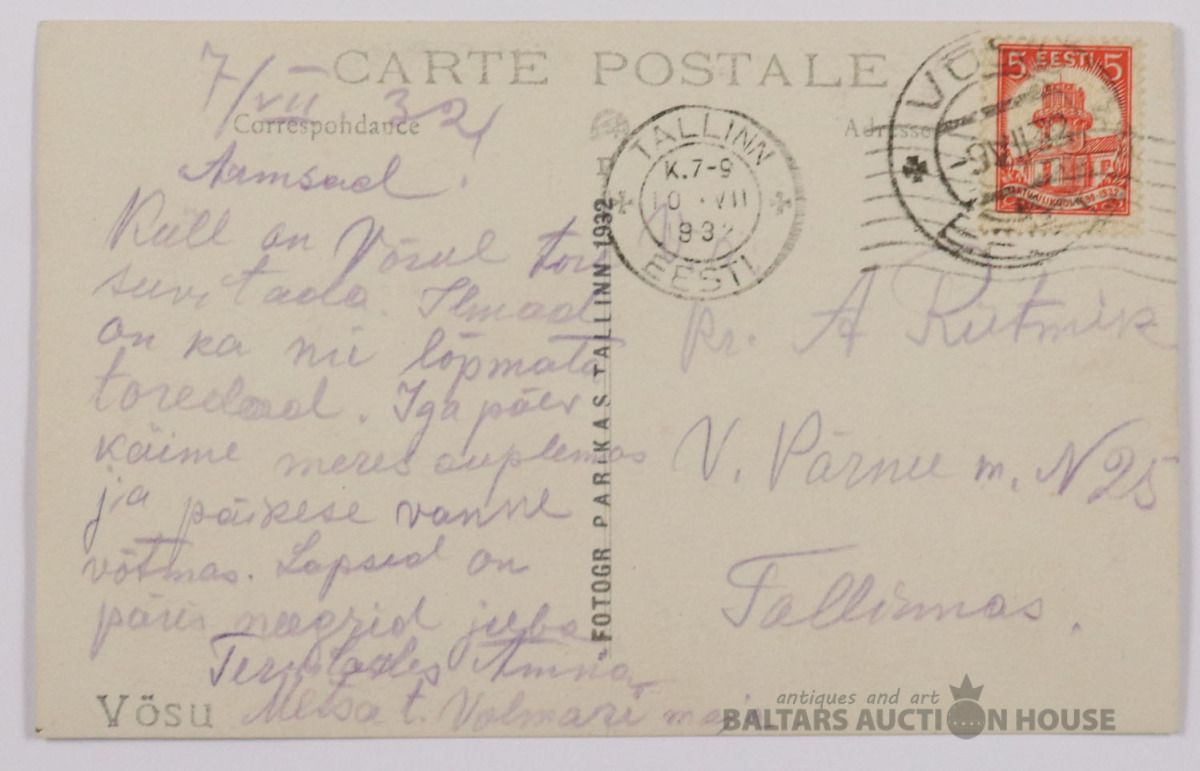 CARTE POSTALE
Correspondance
Adresse
7/VII 32
Armsad!
Küll on Võsul tore
suvitada. Ilmad
on ka nii lõpmata
toredad. Iga päev
käime meres suplemas
ja päikese vanne
võtmas. Lapsed on
päris neegrid juba
Tervitades Anna
Metsa t. Volmari maja
Võsu
FOTOGR PARIKAS TALLINN 1932
TALLINN
K. 7-9
10 . VII
932
EESTI
VÕSU
-9 VII 32
EESTI
5 EESTI 5
Pr. A Rütmik
V. Pärnu m. N 25
Tallinnas.
antiques and art
BALTARS AUCTION HOUSE